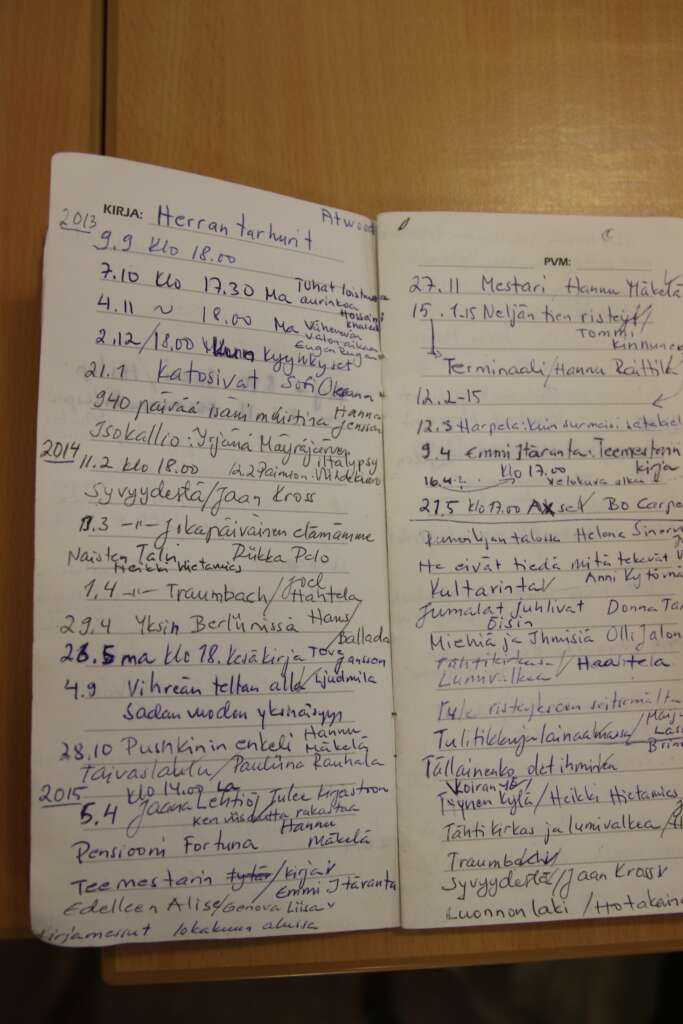 2013 KIRJA: Herran tarhurit Atwood
9.9 klo 18.00
7.10 klo 17.30 Ma Tuhat loistavaa aurinkoa
4.11 ~ 18.00 Ma Hosseini Khaled
Vähenevän valon aikaan
2.12/18.00 Eugen Ruge
Kun kyyhkyset
21.1 katosivat Sofi Oksanen
940 päivää isäni muistina Hanna Jensen
Isokallio: Yrjänä Mäyräjärven iltalypsy
2014 11.2 klo 18.00 12.2
Syvyydestä/Jaan Kross
11.3 -"- Jokapäiväinen elämämme
Naisten Talu Riikka Pelo
Heikki Hietamies
1.4 -"- Traumbach/Joel Haahtela
29.4 Yksin Berliinissä Hans Fallada
26.5 ma klo 18. Kesäkirja Tove Jansson
4.9 Vihreän teltan alla/Ljudmila
Sadan vuoden yksinäisyys
28.10 Pushkinin enkeli Hannu Mäkelä
Taivaslaulu/Pauliina Rauhala
2015 klo 14.00 La
5.4 Jaana Lehtiö/Tulee kirjastoon
Ken viisautta rakastaa
Pensiooni Fortuna Hannu Mäkelä
Teemestarin tytär/kirja Emmi Itäranta
Edelleen Alise/Genova Liisa
Kirjamessut lokakuun alussa
PVM:
27.11 Mestari Hannu Mäkelä
15.1-15 Neljän tien risteys/
Tommi Kinnunen
Terminaali/Hannu Raittila
12.2-15
12.3 Harpela: Kuin surmaisi satakiel
9.4 Emmi Itäranta: Teemestarin kirja
16.4. klo 17.00
21.5 klo 17.00 Axel Bo Carpe
Runoilijan talossa Helena Sinervo
He eivät tiedä mitä tekevät
Kultarinta Anni Kytöm
Jumalat juhlivat Donna Ta
öisin
Miehiä ja Ihmisiä Olli Jalon
Tähtikirkas/Haahtela
Lumivalkea
Tule risteykseen seitsemältä
Tulitikkuja lainaamassa/Maiju Lass
Tällainenko olet ihminen
Koiran yö/
Tyynen kylä/Heikki Hietamies
Tähtikirkas ja lumivalkea/
Traumbach
Syvyydestä/Jaan Kross
Luonnon laki/Hotakaine